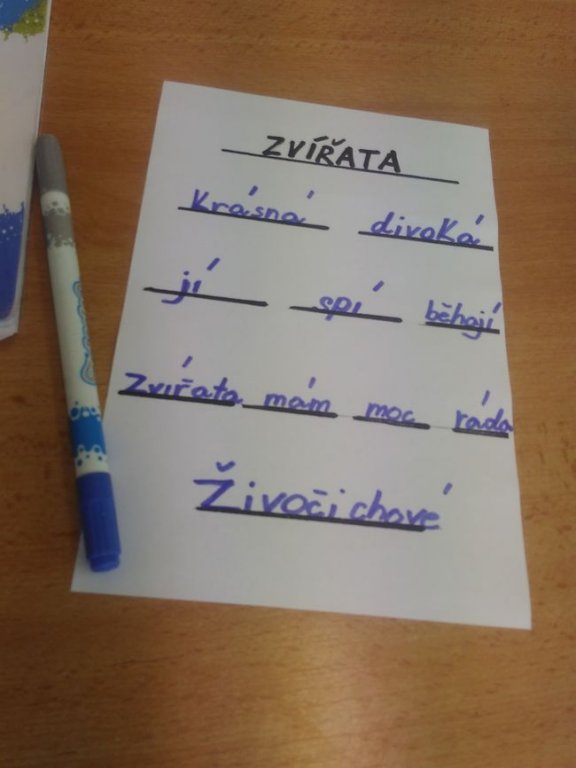 ZVÍŘATA
Krásná divoká
jí spí běhají
Zvířata mám moc ráda
Živočichové